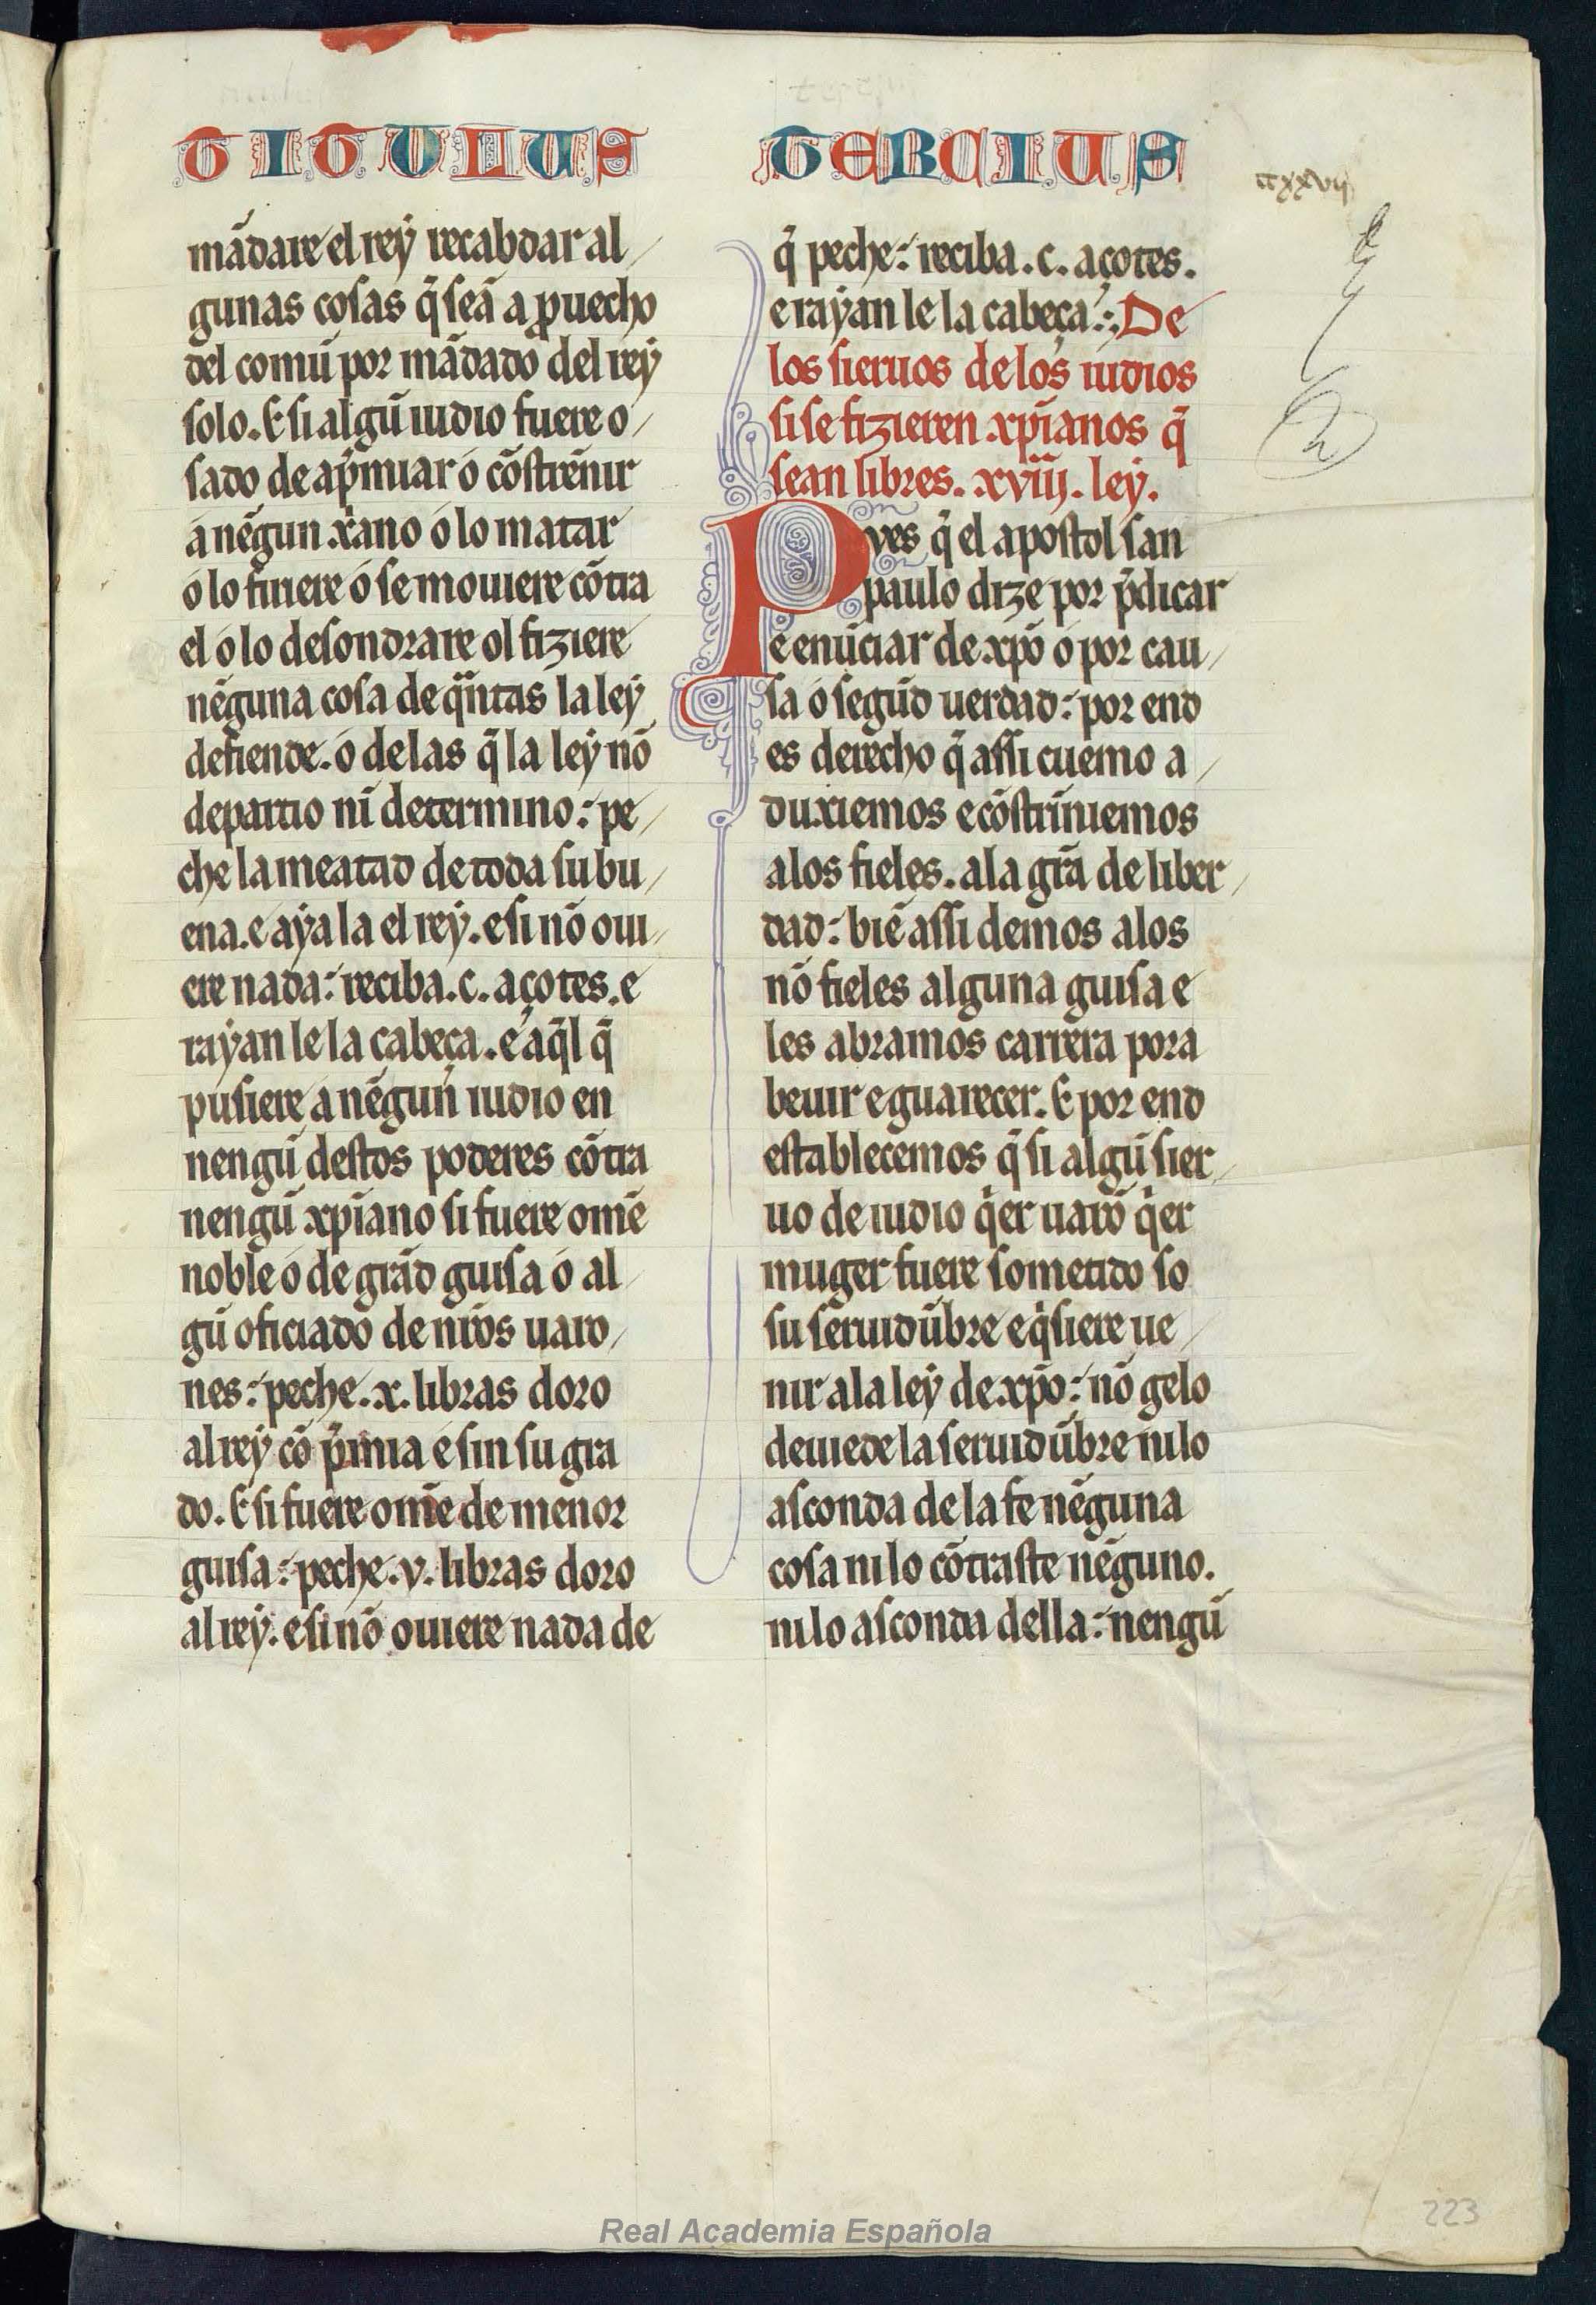 TITULUS TERCIUS
ccxxvij
mãdare el rey recabdar al/
gunas cosas q̃ seã a ꝓuecho
del comũ por mãdado del rey
solo. E si algũ iudio fuere o/
sado de ap̃miar o cõstrẽnir
a nẽgun xr̃ano o lo matar
o lo firiere o se mouiere cõtra
el o lo desondrare ol fiziere
nẽguna cosa de qñtas la ley
defiende. o de las q̃ la ley nõ
departio nĩ determino: pe/
che la meatad de toda su bu/
ena. e aya la el rey. e si nõ oui/
ere nada: reciba .c. açotes. e
rayan le la cabeça. e aq̃l q̃
pusiere a nẽgun iudio en
nengũ destos poderes cõtra
nengũ xp̃iano si fuere omẽ
noble o de grãd guisa o al/
gũ oficiado de nr̃os uaro/
nes: peche .x. libras doro
al rey cõ p̃mia e sin su gra
do. E si fuere omẽ de menor
guisa: peche .v. libras doro
al rey. e si nõ ouiere nada de
q̃ peche: reciba .c. açotes.
e rayan le la cabeça: De
los sieruos de los iudios
si se fizieren xp̃ianos q̃
sean libres. xviij. ley.
Pves q̃ el apostol san
paulo dize por p̃dicar
e enũciar de xp̃o o por cau/
sa o segũd uerdad: por end
es derecho q̃ assi cuemo a/
duxiemos e cõstrĩniemos
a los fieles. a la gr̃a de liber/
dad: biẽ assi demos a los
nõ fieles alguna guisa e
les abramos carrera pora
beuir e guarecer. E por end
establecemos q̃ si algũ sier/
uo de iudio q̃er uarõ q̃er
muger fuere sometido so
su seruidũbre e q̃siere ue/
nir a la ley de xp̃o: nõ gelo
deuiede la seruidũbre ni lo
asconda de la fe nẽguna
cosa ni lo cõtraste nẽguno.
ni lo asconda della: nengũ
223
Real Academia Española